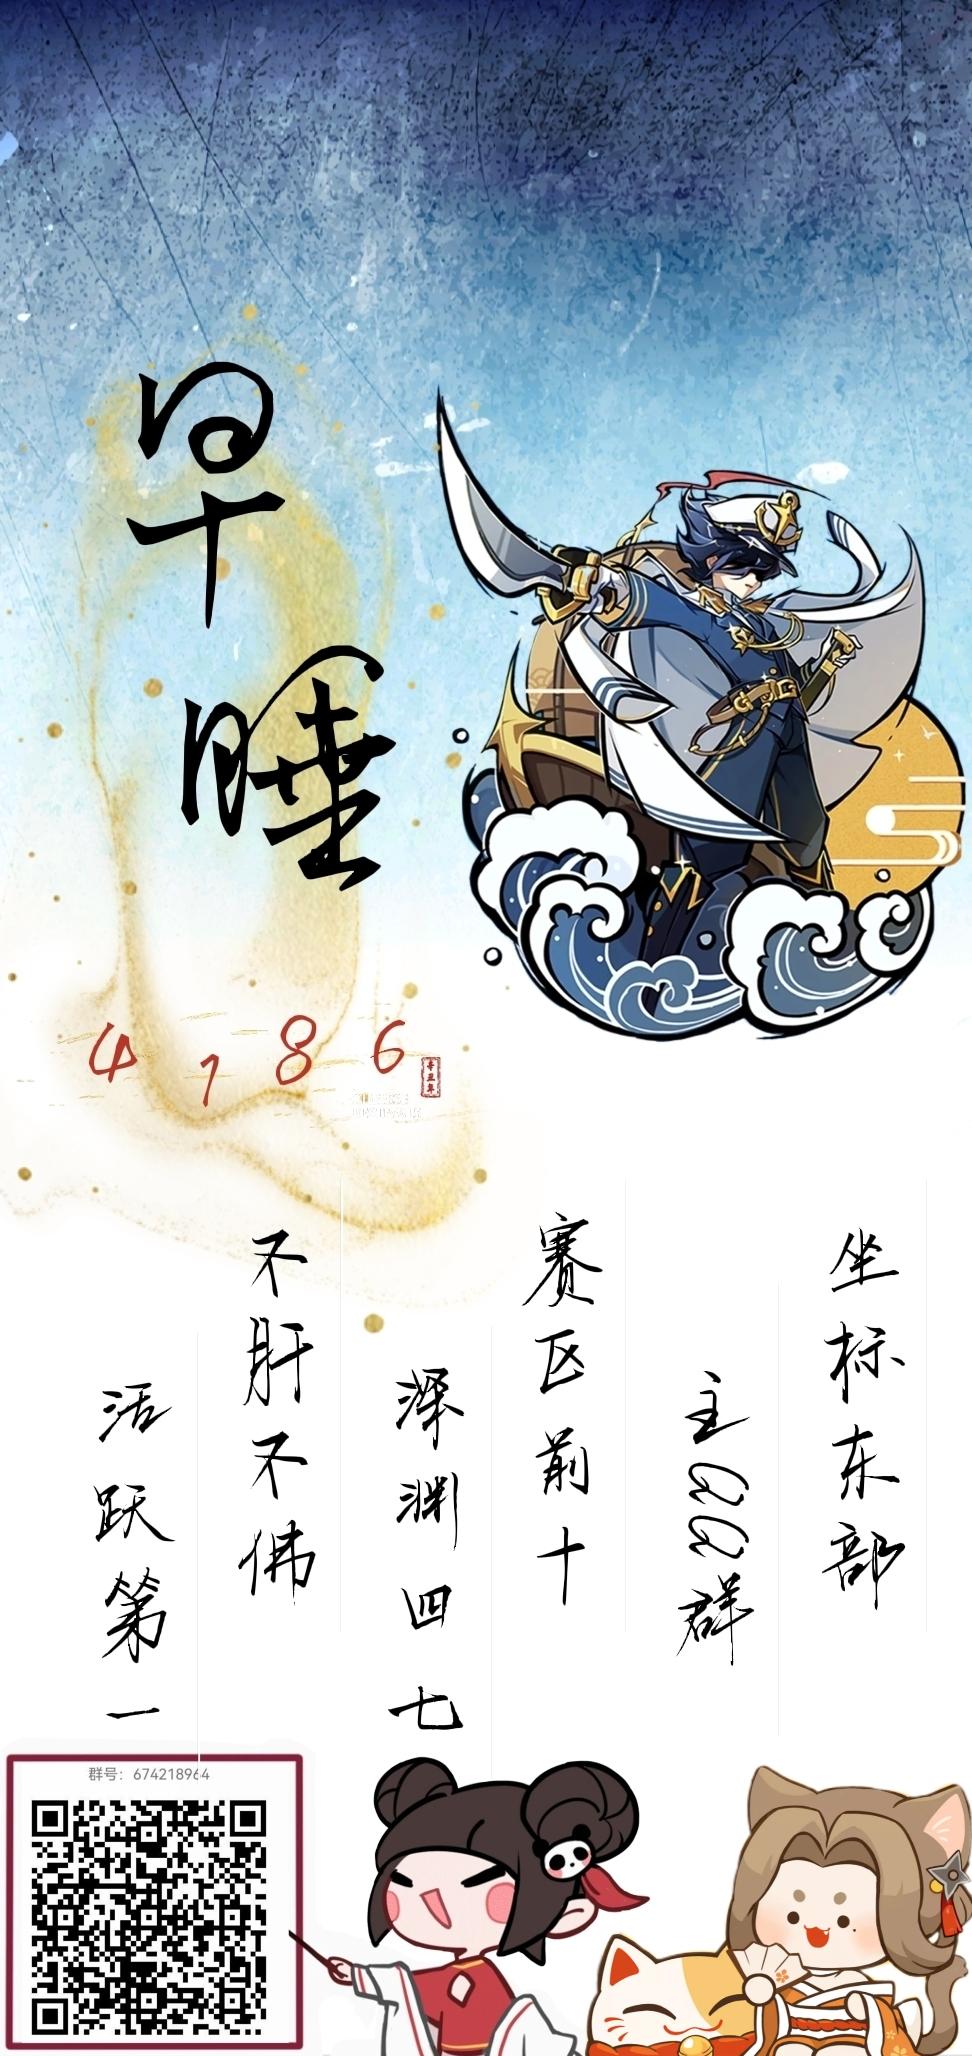 早睡
4186
辛丑年
坐标东部
主QQ群
赛区前十
深渊四七
不肝不佛
活跃第一
群号：674218964